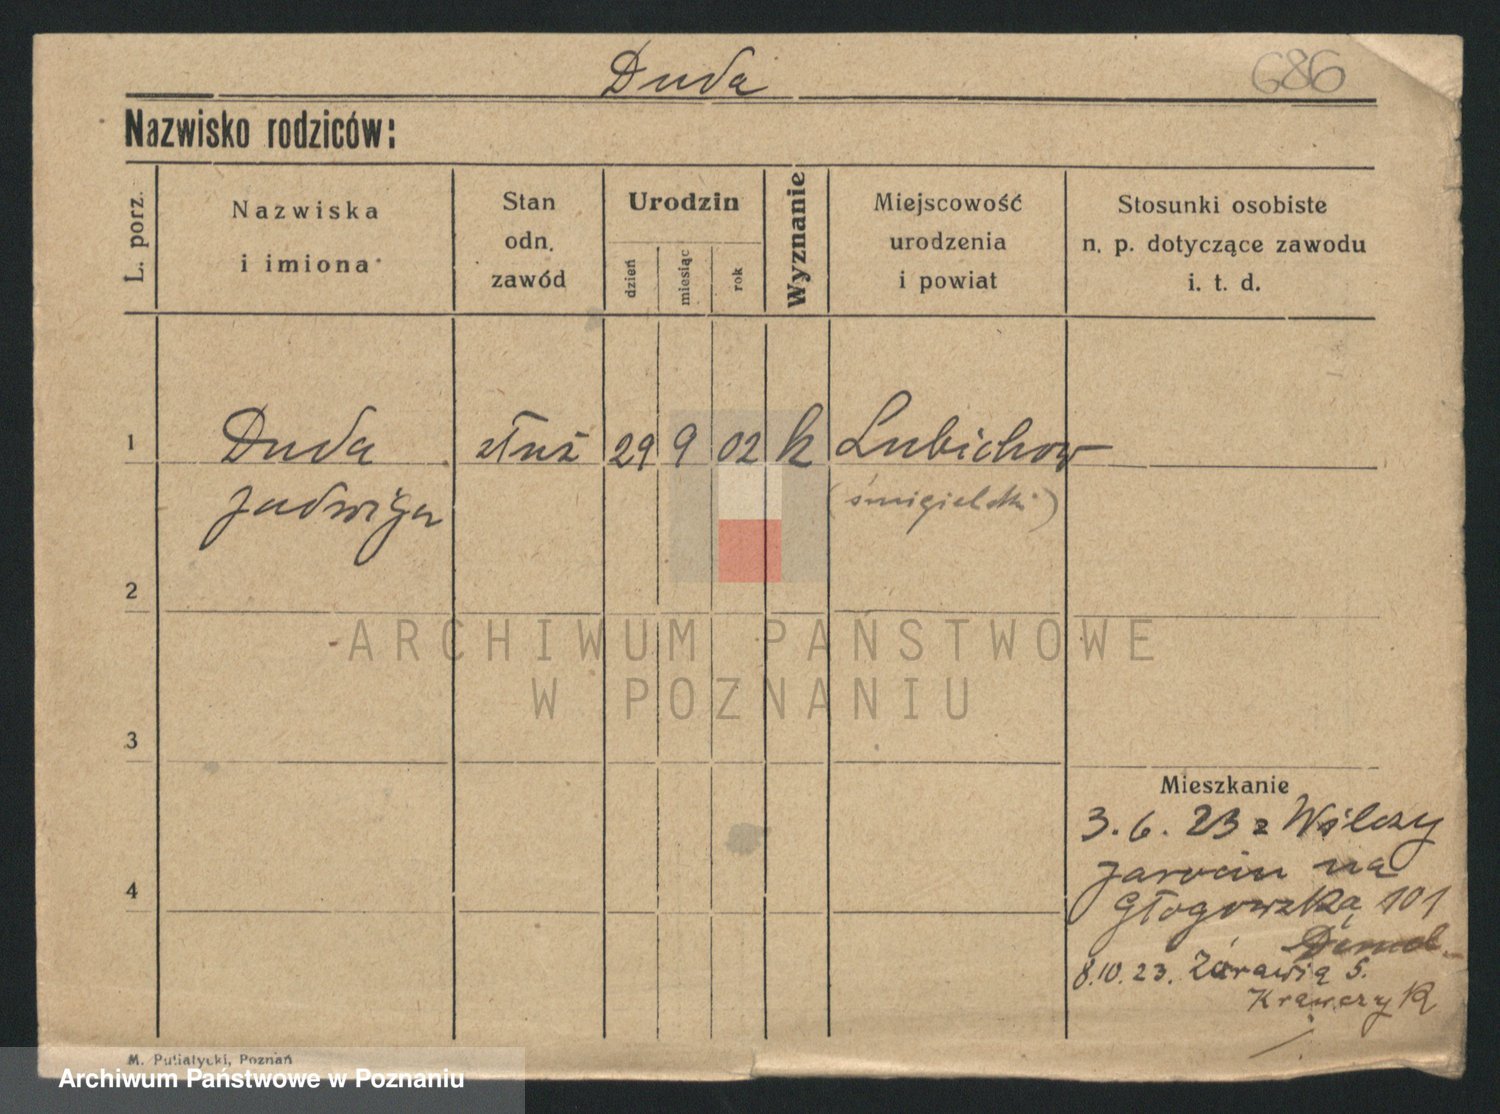 Duda
686
Nazwisko rodziców:
L. porz.
Nazwiska
i imiona
Stan
odn.
zawód
Urodzin
dzień
miesiąc
rok
Wyznanie
Miejscowość
urodzenia
i powiat
Stosunki osobiste
n. p. dotyczące zawodu
i. t. d.
1
Duda
służ
29 9 02 k Lubichow
Jadwiga
(śmigielski)
2
ARCHIWUM PAŃSTWOWE
W POZNANIU
3
Mieszkanie
3.6.23 z Wilczy
Jarocin na
Głogowską 101
8.10.23. Żórawią 5.
Krawczyk
4
M. Putiatycki, Poznań
Archiwum Państwowe w Poznaniu